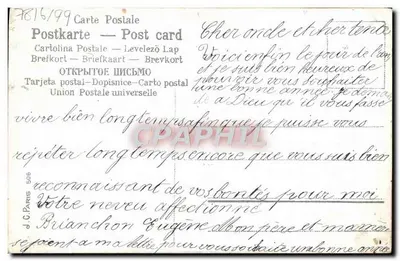 7816/99
Carte Postale
Postkarte — Post card
Cartolina Postale – Levelező Lap
Brefkort – Briefkaart – Brevkort
ОТКРЫТОЕ ПИСЬМО
Tarjeta postal–Dopisnice–Carto postal
Union Postale universelle
Cher oncle et cher tante
Voici enfin le jour de l'an
et je suis bien heureux de
pouvoir vous souhaiter
une bonne année je deman
de a Dieu qu'il vous fasse
vivre bien longtemps afin que je puisse vous
répéter longtemps encore que vous suis bien
reconnaissant de vos bontés pour moi
Votre neveu affectionné
Brianchon Eugène mon père et maman
se joient a ma lettre pour vous souhaiter une bonne année
CPAPHIL
J.C. PARIS 506